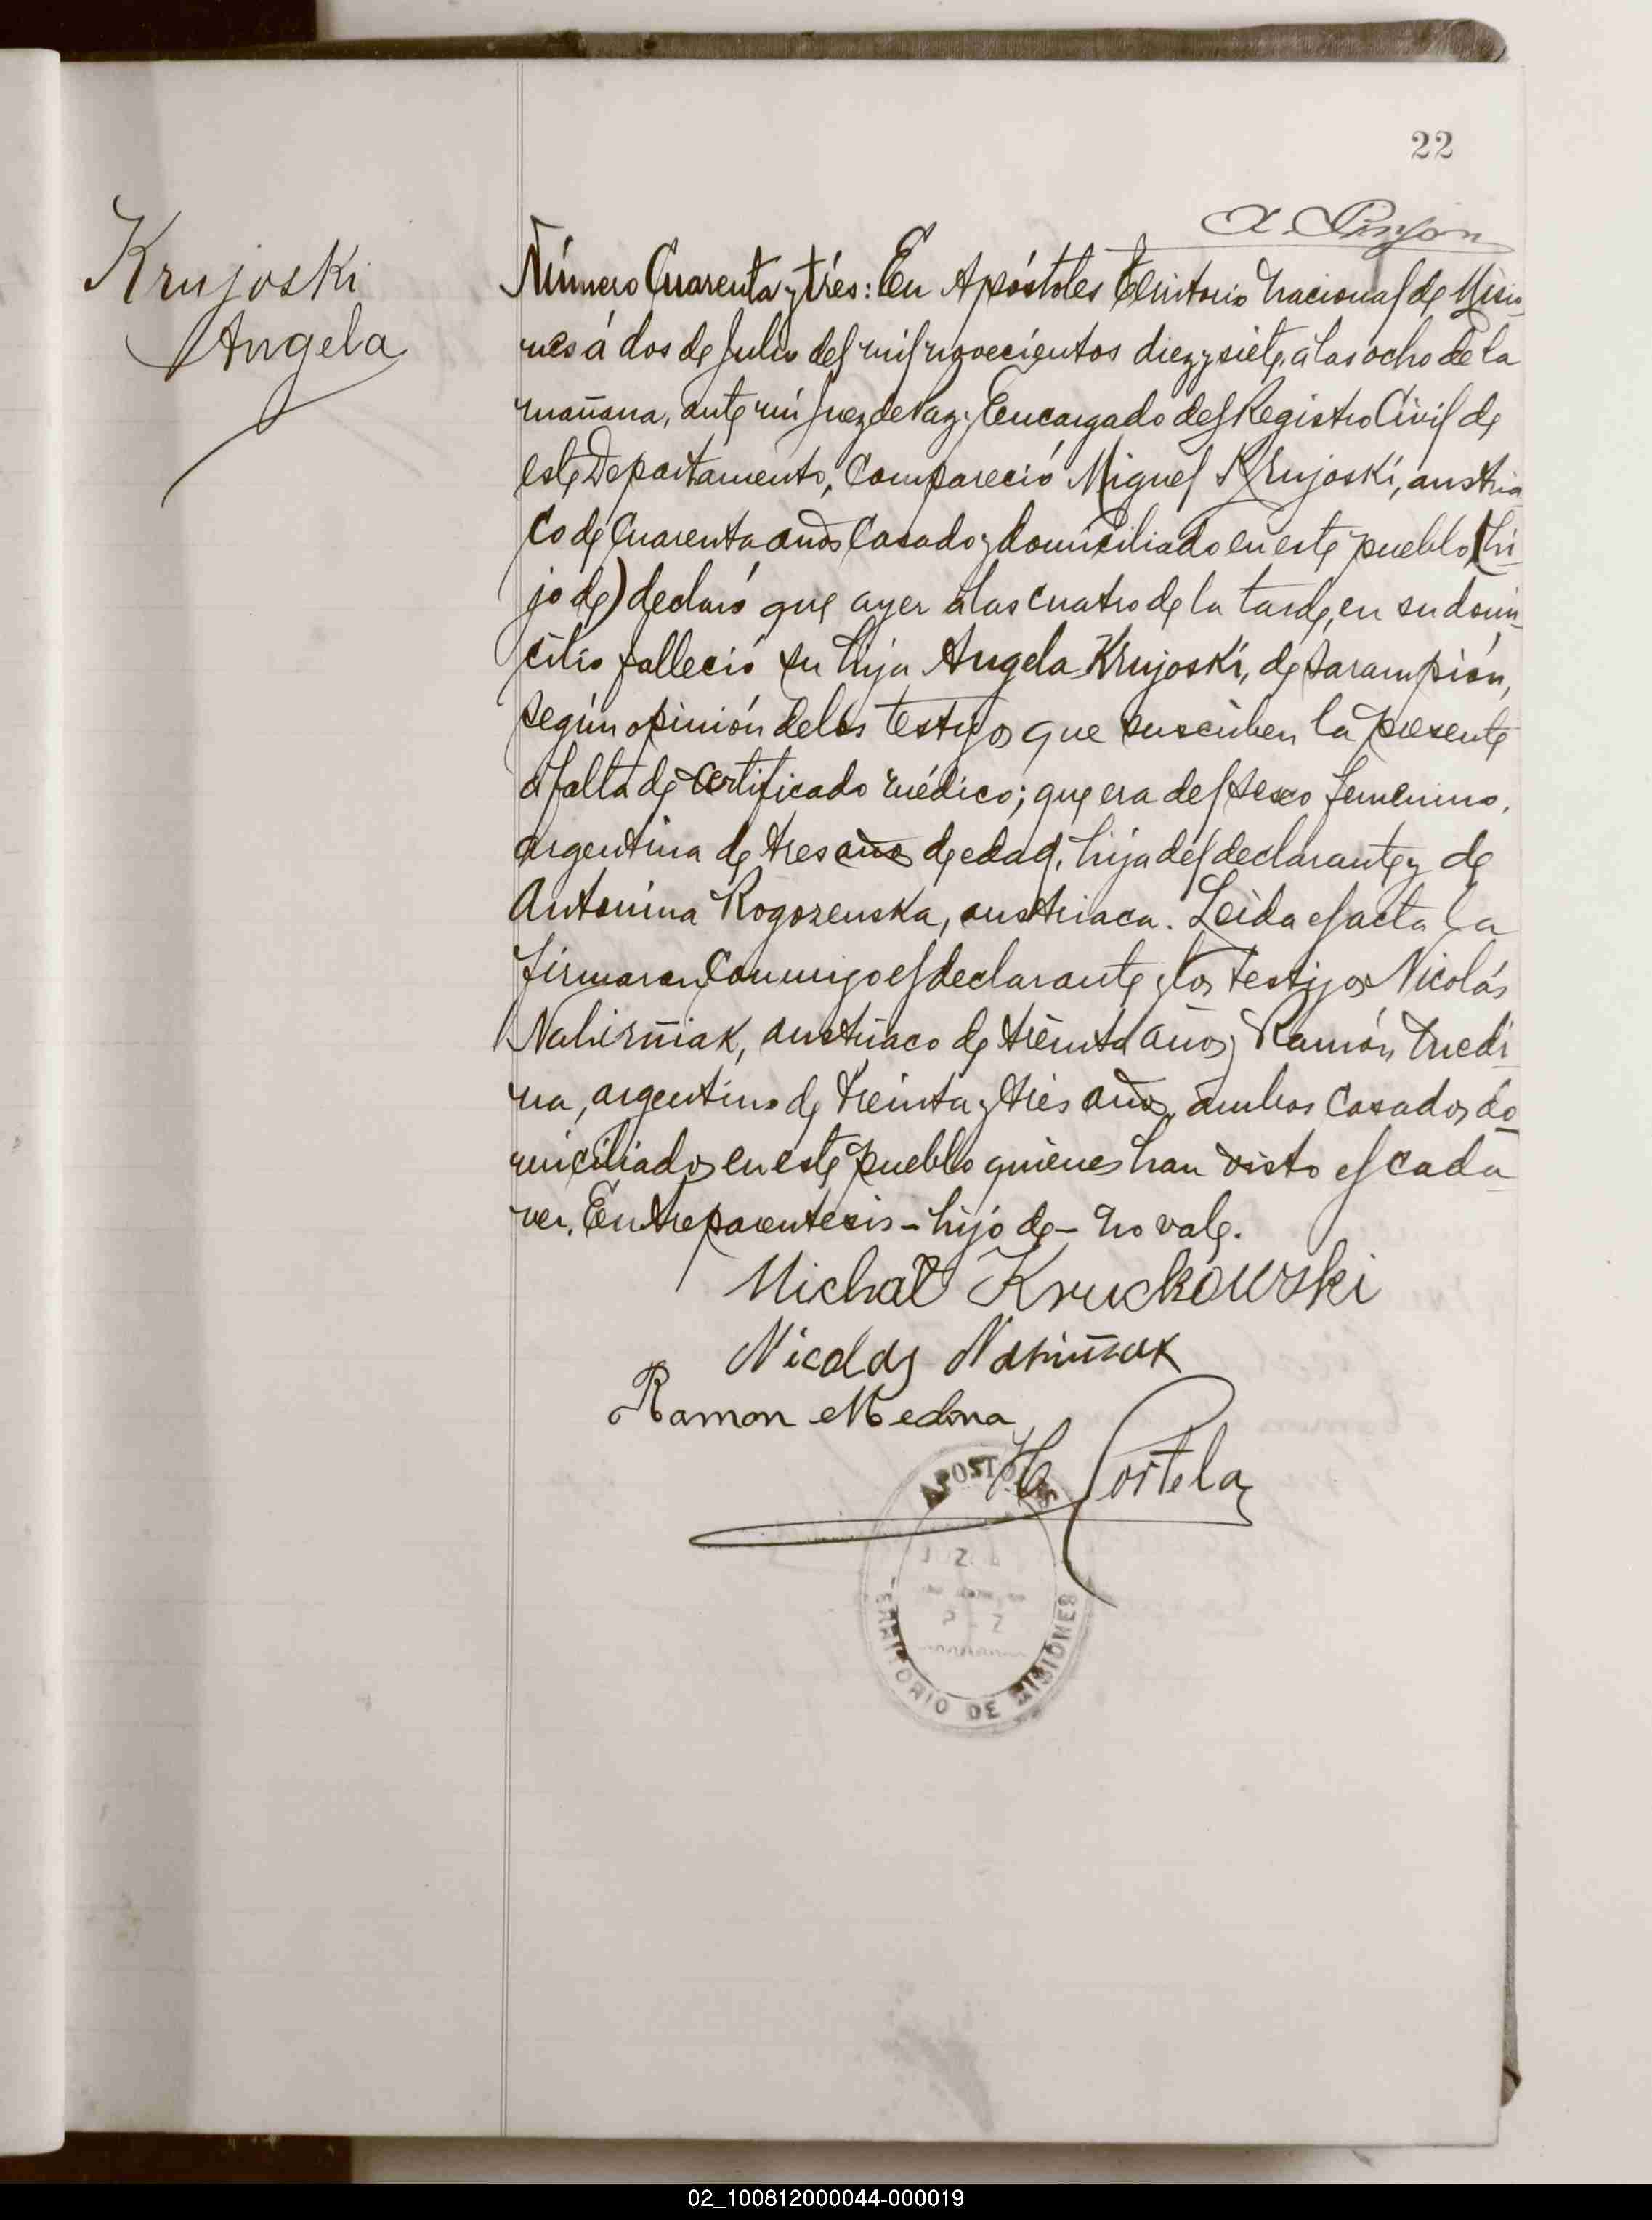 22
Krujoski
Angela
Número Cuarenta y trés: En Apóstoles Territorio Nacional de Misio-
nes á dos de Julio del mil novecientos diez y siete, á las ocho de la
mañana, ante mí Juez de Paz y Encargado del Registro Civil de
este Departamento, Compareció Miguel Krujoski, austria
co de Cuarenta años Casado y domiciliado en este pueblo (hi-
jo de) declaró que ayer á las cuatro de la tarde, en su domi-
cilio falleció su hija Angela Krujoski, de sarampión,
según opinión de los testigos que suscriben la presente
á falta de certificado médico; que era del sexo femenino,
argentina de tres años de edad, hija del declarante y de
Antonina Rogozenska, austriaca. Leida el acta la
firmaron Conmigo el declarante y los testigos Nicolás
Nahirñiak, austriaco de treinta años y Ramón Medi-
na, argentino de treinta y trés años, ambos Casados do-
miciliados en este pueblo quienes han visto el cada-
ver. Entreparentesis - hijo de - no vale.
Michał Kruckowski
Nicolas
Ramon Medina
H Portela
APOSTOLES
TERRITORIO DE MISIONES
02_100812000044-000019